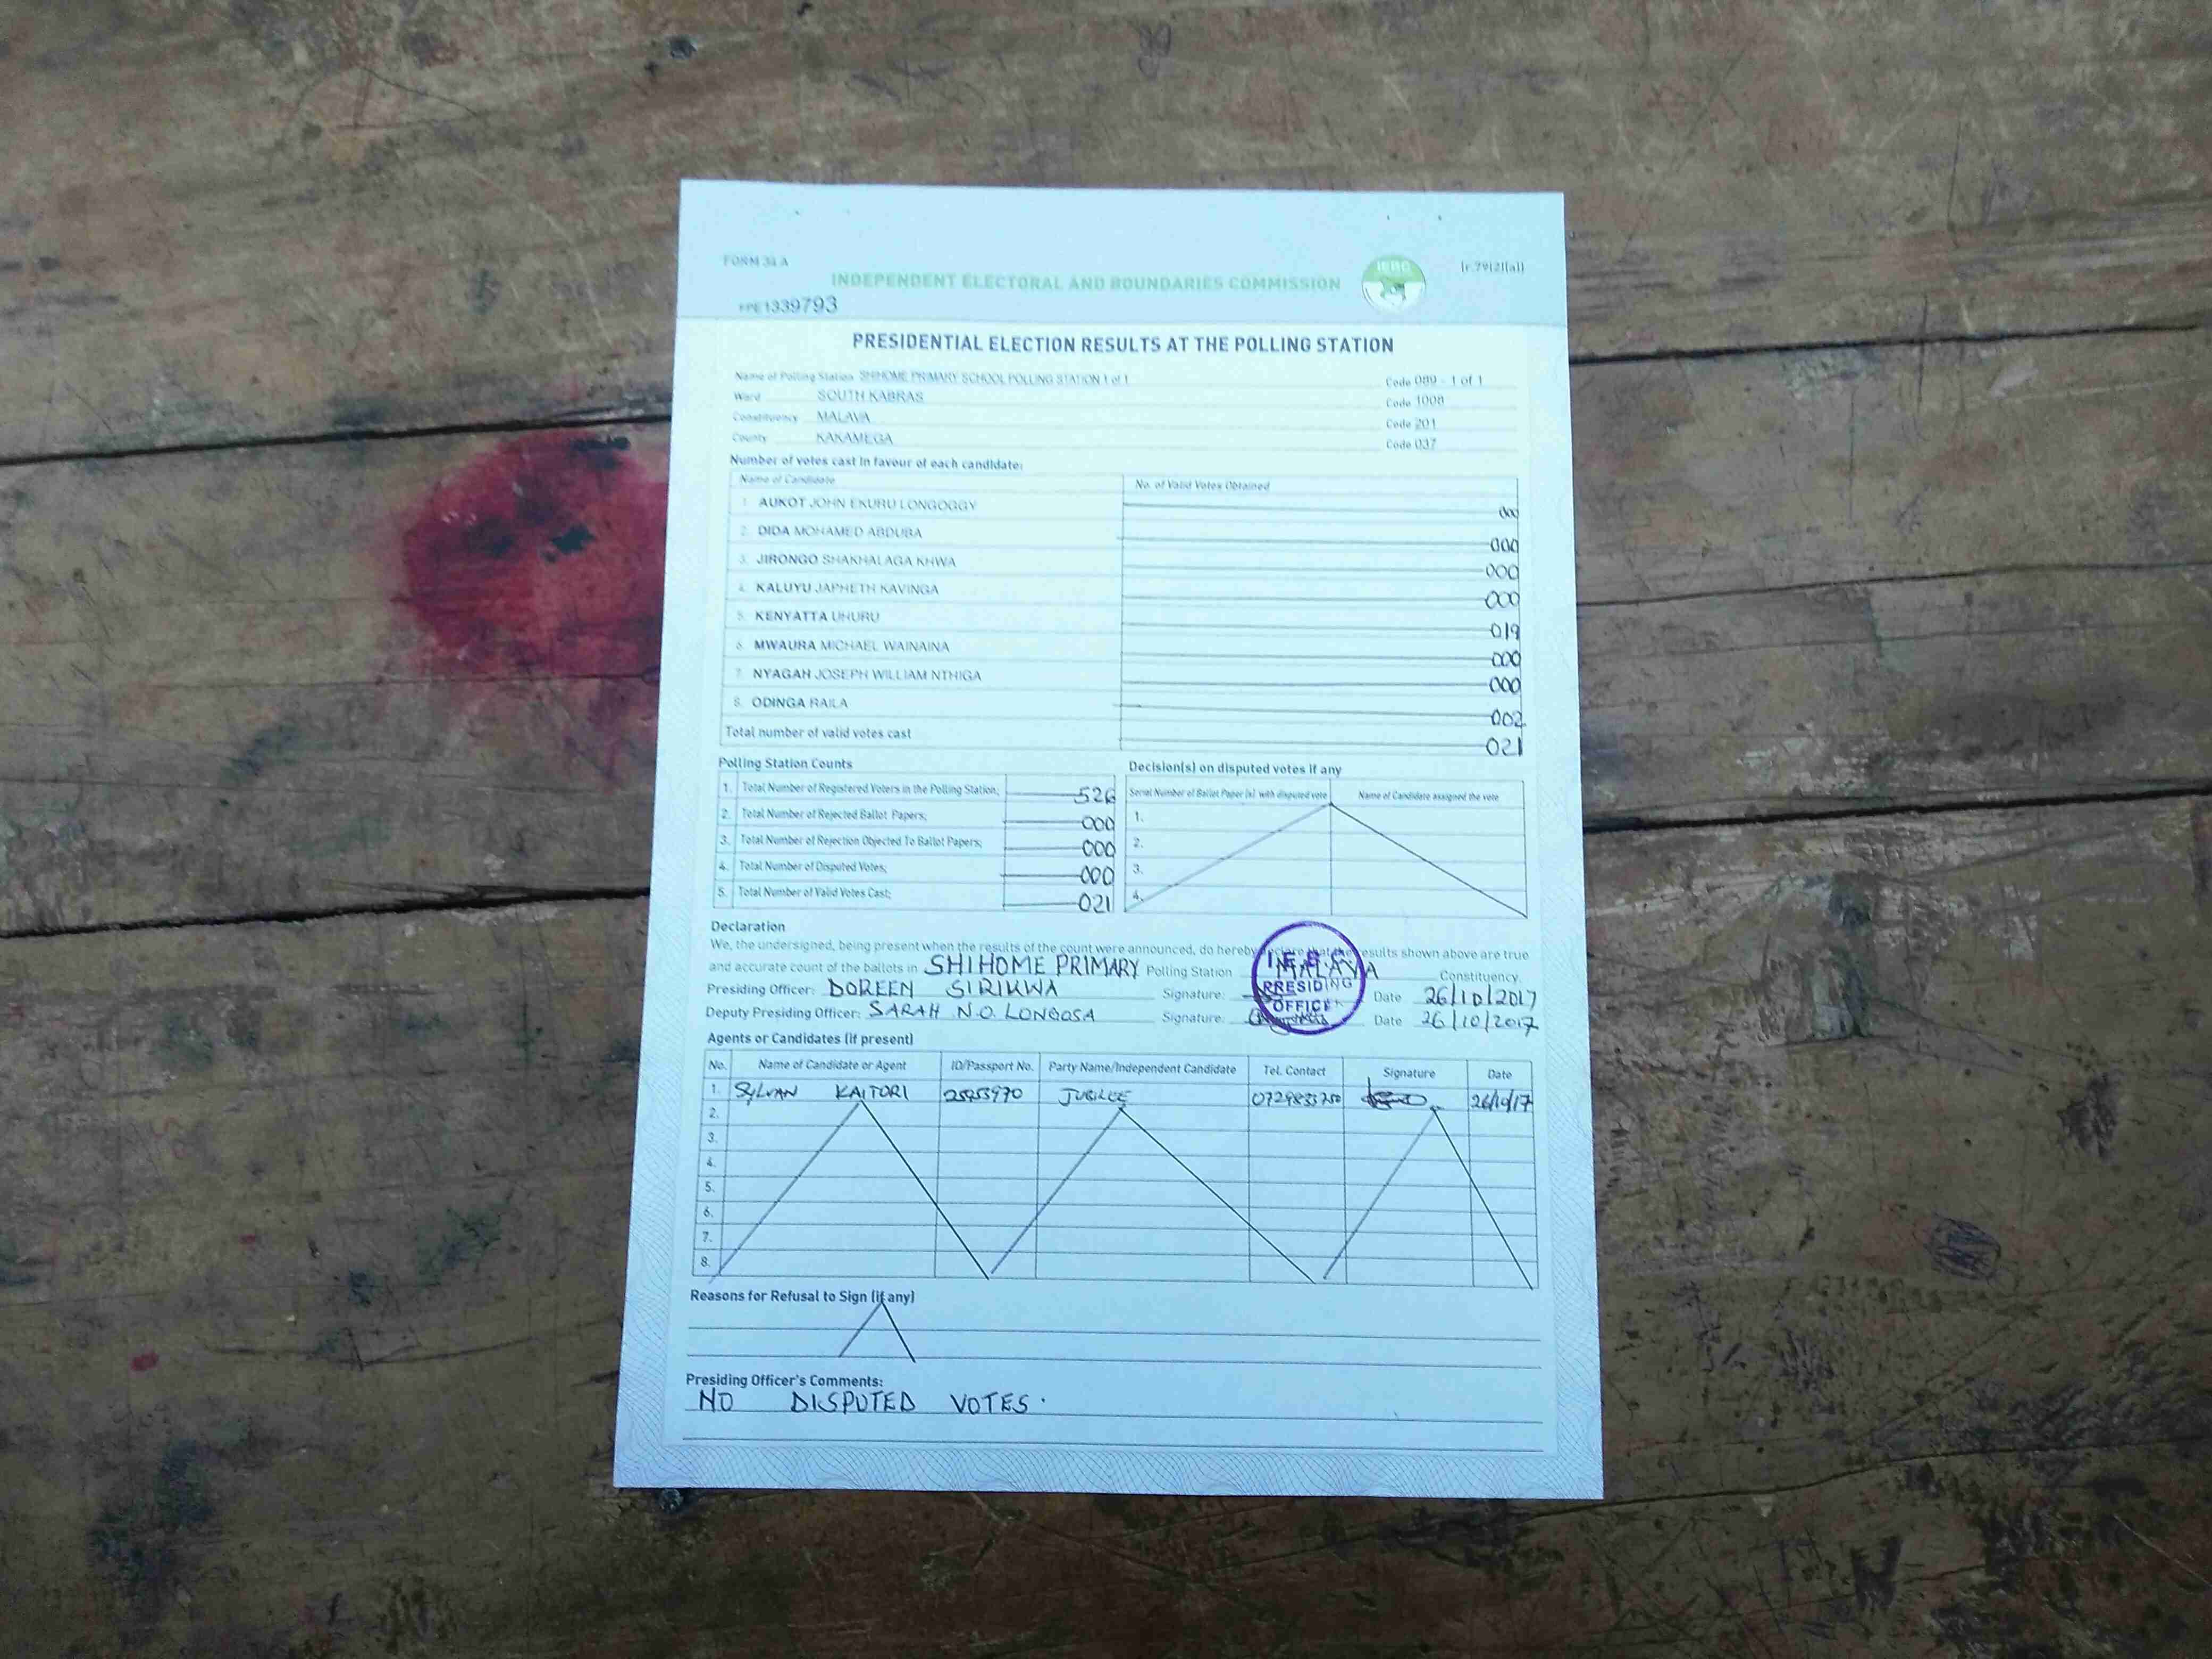 FORM 34 A
[r.79(2)(a)]
INDEPENDENT ELECTORAL AND BOUNDARIES COMMISSION
IEBC
1339793
PRESIDENTIAL ELECTION RESULTS AT THE POLLING STATION
Name of Polling Station SHIHOME PRIMARY SCHOOL POLLING STATION 1 of 1 Code 089 - 1 of 1
Ward SOUTH KABRAS Code 1008
Constituency MALAVA Code 201
County KAKAMEGA Code 037
Number of votes cast in favour of each candidate:
Name of Candidate No. of Valid Votes Obtained
1. AUKOT JOHN EKURU LONGOGGY 000
2. DIDA MOHAMED ABDUBA 000
3. JIRONGO SHAKHALAGA KHWA 000
4. KALUYU JAPHETH KAVINGA 000
5. KENYATTA UHURU 019
6. MWAURA MICHAEL WAINAINA 000
7. NYAGAH JOSEPH WILLIAM NTHIGA 000
8. ODINGA RAILA 002
Total number of valid votes cast 021
Polling Station Counts
1. Total Number of Registered Voters in the Polling Station; 526
2. Total Number of Rejected Ballot Papers; 000
3. Total Number of Rejection Objected To Ballot Papers; 000
4. Total Number of Disputed Votes; 000
5. Total Number of Valid Votes Cast; 021
Decision(s) on disputed votes if any
Serial Number of Ballot Paper (s) with disputed vote Name of Candidate assigned the vote
1.
2.
3.
4.
Declaration
We, the undersigned, being present when the results of the count were announced, do hereby declare that the results shown above are true
and accurate count of the ballots in SHIHOME PRIMARY Polling Station MALAVA Constituency.
Presiding Officer: DOREEN SIRIKWA Signature: Date 26/10/2017
Deputy Presiding Officer: SARAH N.O. LONGOSA Signature: Date 26/10/2017
I.E.B.C
PRESIDING
OFFICER
Agents or Candidates (if present)
No. Name of Candidate or Agent ID/Passport No. Party Name/Independent Candidate Tel. Contact Signature Date
1. SYLVAN KAITORI JUBILEE 26/10/17
2.
3.
4.
5.
6.
7.
8.
Reasons for Refusal to Sign (if any)
Presiding Officer's Comments:
NO DISPUTED VOTES.